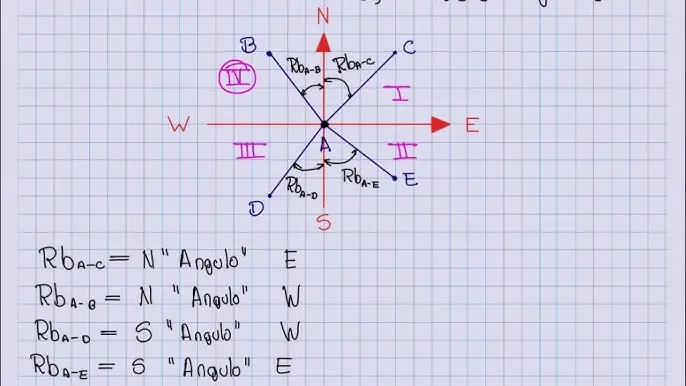 N
B
C
RbA-B
RbA-C
IV
I
W
E
III
A
II
RbA-D
RbA-E
E
D
S
RbA-C = N "Angulo" E
RbA-B = N "Angulo" W
RbA-D = S "Angulo" W
RbA-E = S "Angulo" E